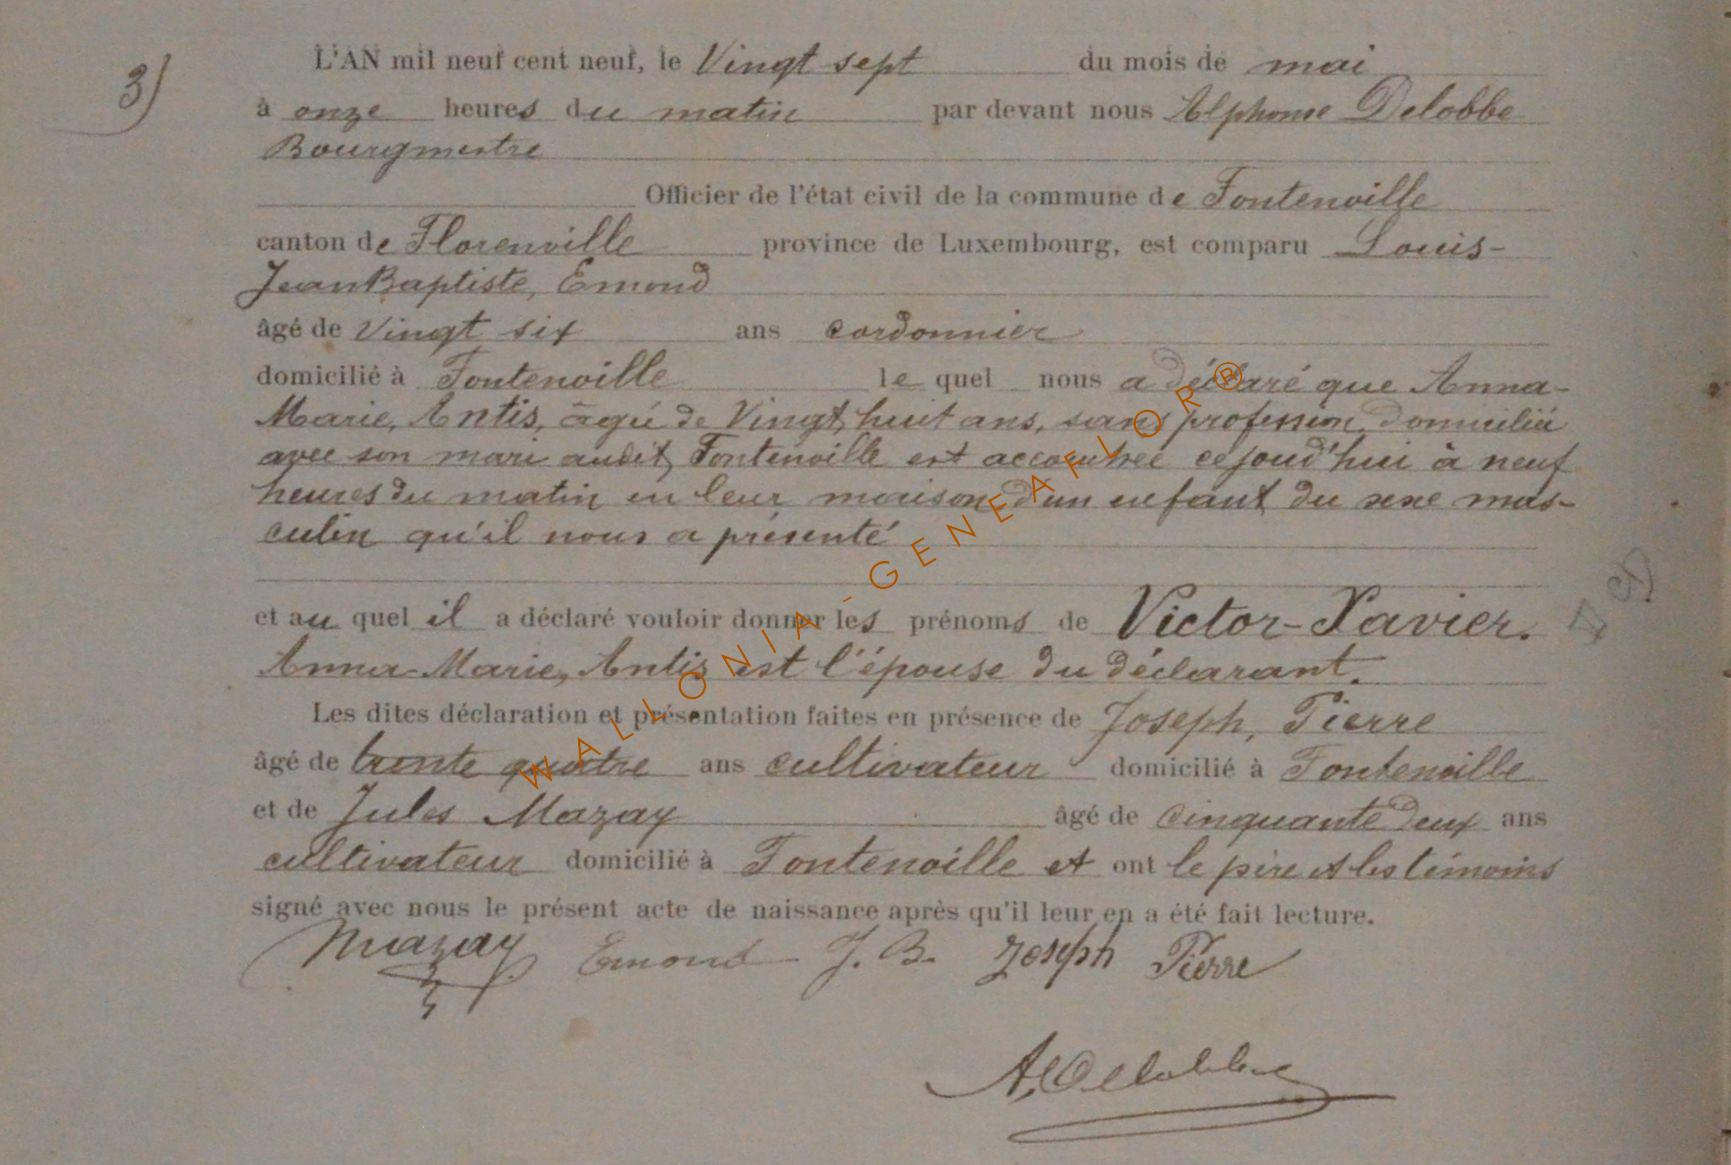 3)
L'AN mil neuf cent neuf, le Vingt sept du mois de mai
à onze heures du matin par devant nous Alphonse Delobbe
Bourgmestre
Officier de l'état civil de la commune de Fontenoille
canton de Florenville province de Luxembourg, est comparu Louis-
Jean Baptiste, Emond
âgé de Vingt six ans cordonnier
domicilié à Fontenoille le quel nous a déclaré que Anna-
Marie, Antis, agée de Vingt huit ans, sans profession, domiciliée
avec son mari audit Fontenoille est accouchée cejourd'hui à neuf
heures du matin en leur maison d'un enfant du sexe mas-
culin qu'il nous a présenté
et au quel il a déclaré vouloir donner les prénoms de Victor-Xavier.
Anna-Marie, Antis est l'épouse du déclarant.
Les dites déclaration et présentation faites en présence de Joseph, Pierre
âgé de trente quatre ans cultivateur domicilié à Fontenoille
et de Jules Mazay âgé de cinquante deux ans
cultivateur domicilié à Fontenoille et ont le père et les témoins
signé avec nous le présent acte de naissance après qu'il leur en a été fait lecture.
Mazay Emond J. B. Joseph Pierre
A. Delobbe
WALLONIA-GENEAFLOR®